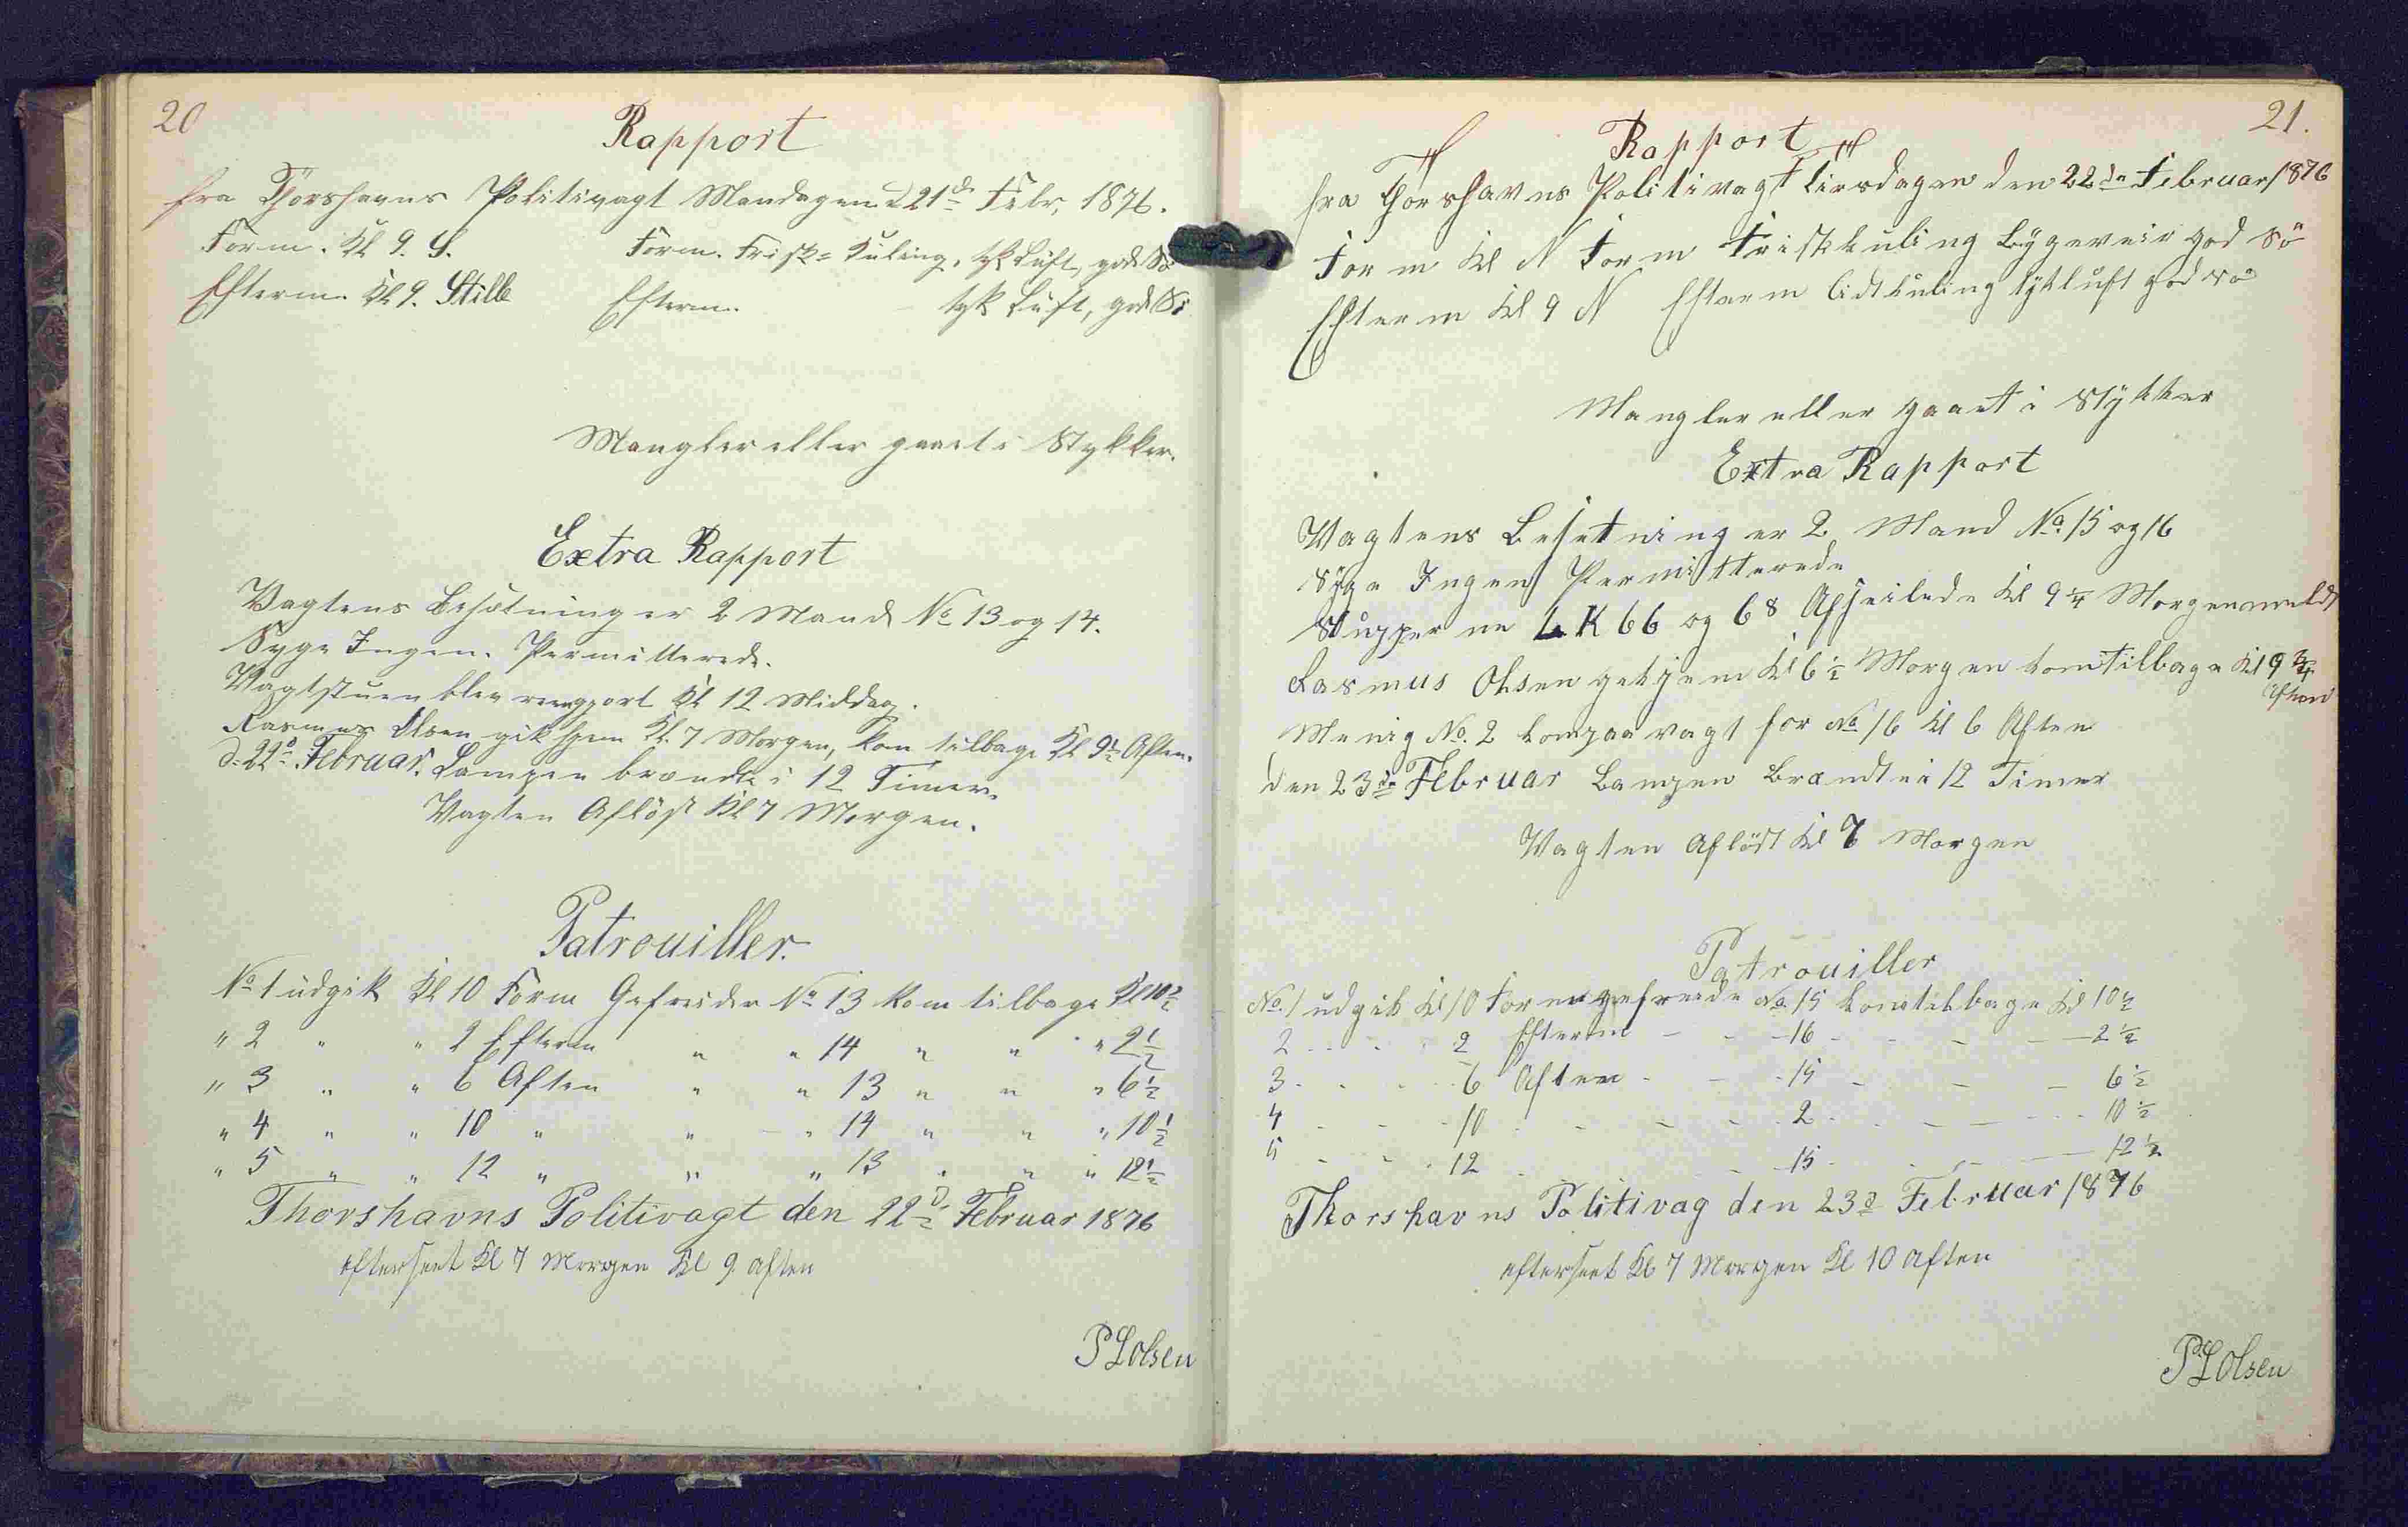 20
Rapport
fra Thorshavns Politivagt Mandagen d 21de Febr. 1876.
Form. Kl 9. S. Form. Frisk= Kuling, tyk Luft, god Sö
Efterm. Kl 9. Stille Efterm. tyk Luft, god Sö
Mangler eller gaaet i Stykker.
Extra Rapport
Vagtens Besætning er 2 Mand No 13 og 14.
Syge Ingen. Permitterede.
Vagtstuen blev rengjort Kl 12 Middag.
Rasmus Olsen gik hjem Kl. 7 Morgen, kom tilbage Kl 9½ Aften.
d: 22de Februar. Lampen brændte i 12 Timer.
Vagten Aflöst Kl 7 Morgen.
Patrouiller.
No 1 udgik Kl 10 Form Gefreider No 13 kom tilbage Kl 10½
" 2 " " 2 Efterm " " 14 " " " 2½
" 3 " " 6 Aften " " 13 " " " 6½
" 4 " " 10 " " " 14 " " " 10½
" 5 " " 12 " " " 13 " " " 12½
Thorshavns Politivagt den 22de Februar 1876
efterseet Kl 7 Morgen Kl 9 Aften
P L Olsen
21.
Rapport
fra Thorshavns Politivagt Tirsdagen den 22de Februar 1876
Form Kl N Form Friskkuling Bygeveir god Sö
Efterm Kl 9 N Efterm lidtkuling tykluft god Sö
Mangler eller gaaet i Stykker
Extra Rapport
Vagtens Besetning er 2 Mand No. 15 og 16
Syge Ingen Permitterede
Slupperne 66 og 68 Afseilede Kl 9¼ Morgen
Rasmus Olsen Kl 6½ Morgen kom tilbage Kl 9¾
Aften
Menig No. 2 kom paa vagt for No 16 Kl 6 Aften
den 23de Februar Lampen Brændte i 12 Timer
Vagten Aflöst Kl 7 Morgen
Patrouiller
No. 1 udgik Kl 10 Form gefreide No 15 kom tilbage Kl 10½
2 - - - 2 Efterm - - - 16 - - - 2½
3 - - - 6 Aften - - - 15 - - - 6½
4 - - - 10 - - - - 2 - - - 10½
5 - - - 12 - - - 15 - - - 12½
Thorshavns Politivag den 23de Februar 1876
efterseet Kl 7 Morgen Kl 10 Aften
P L Olsen